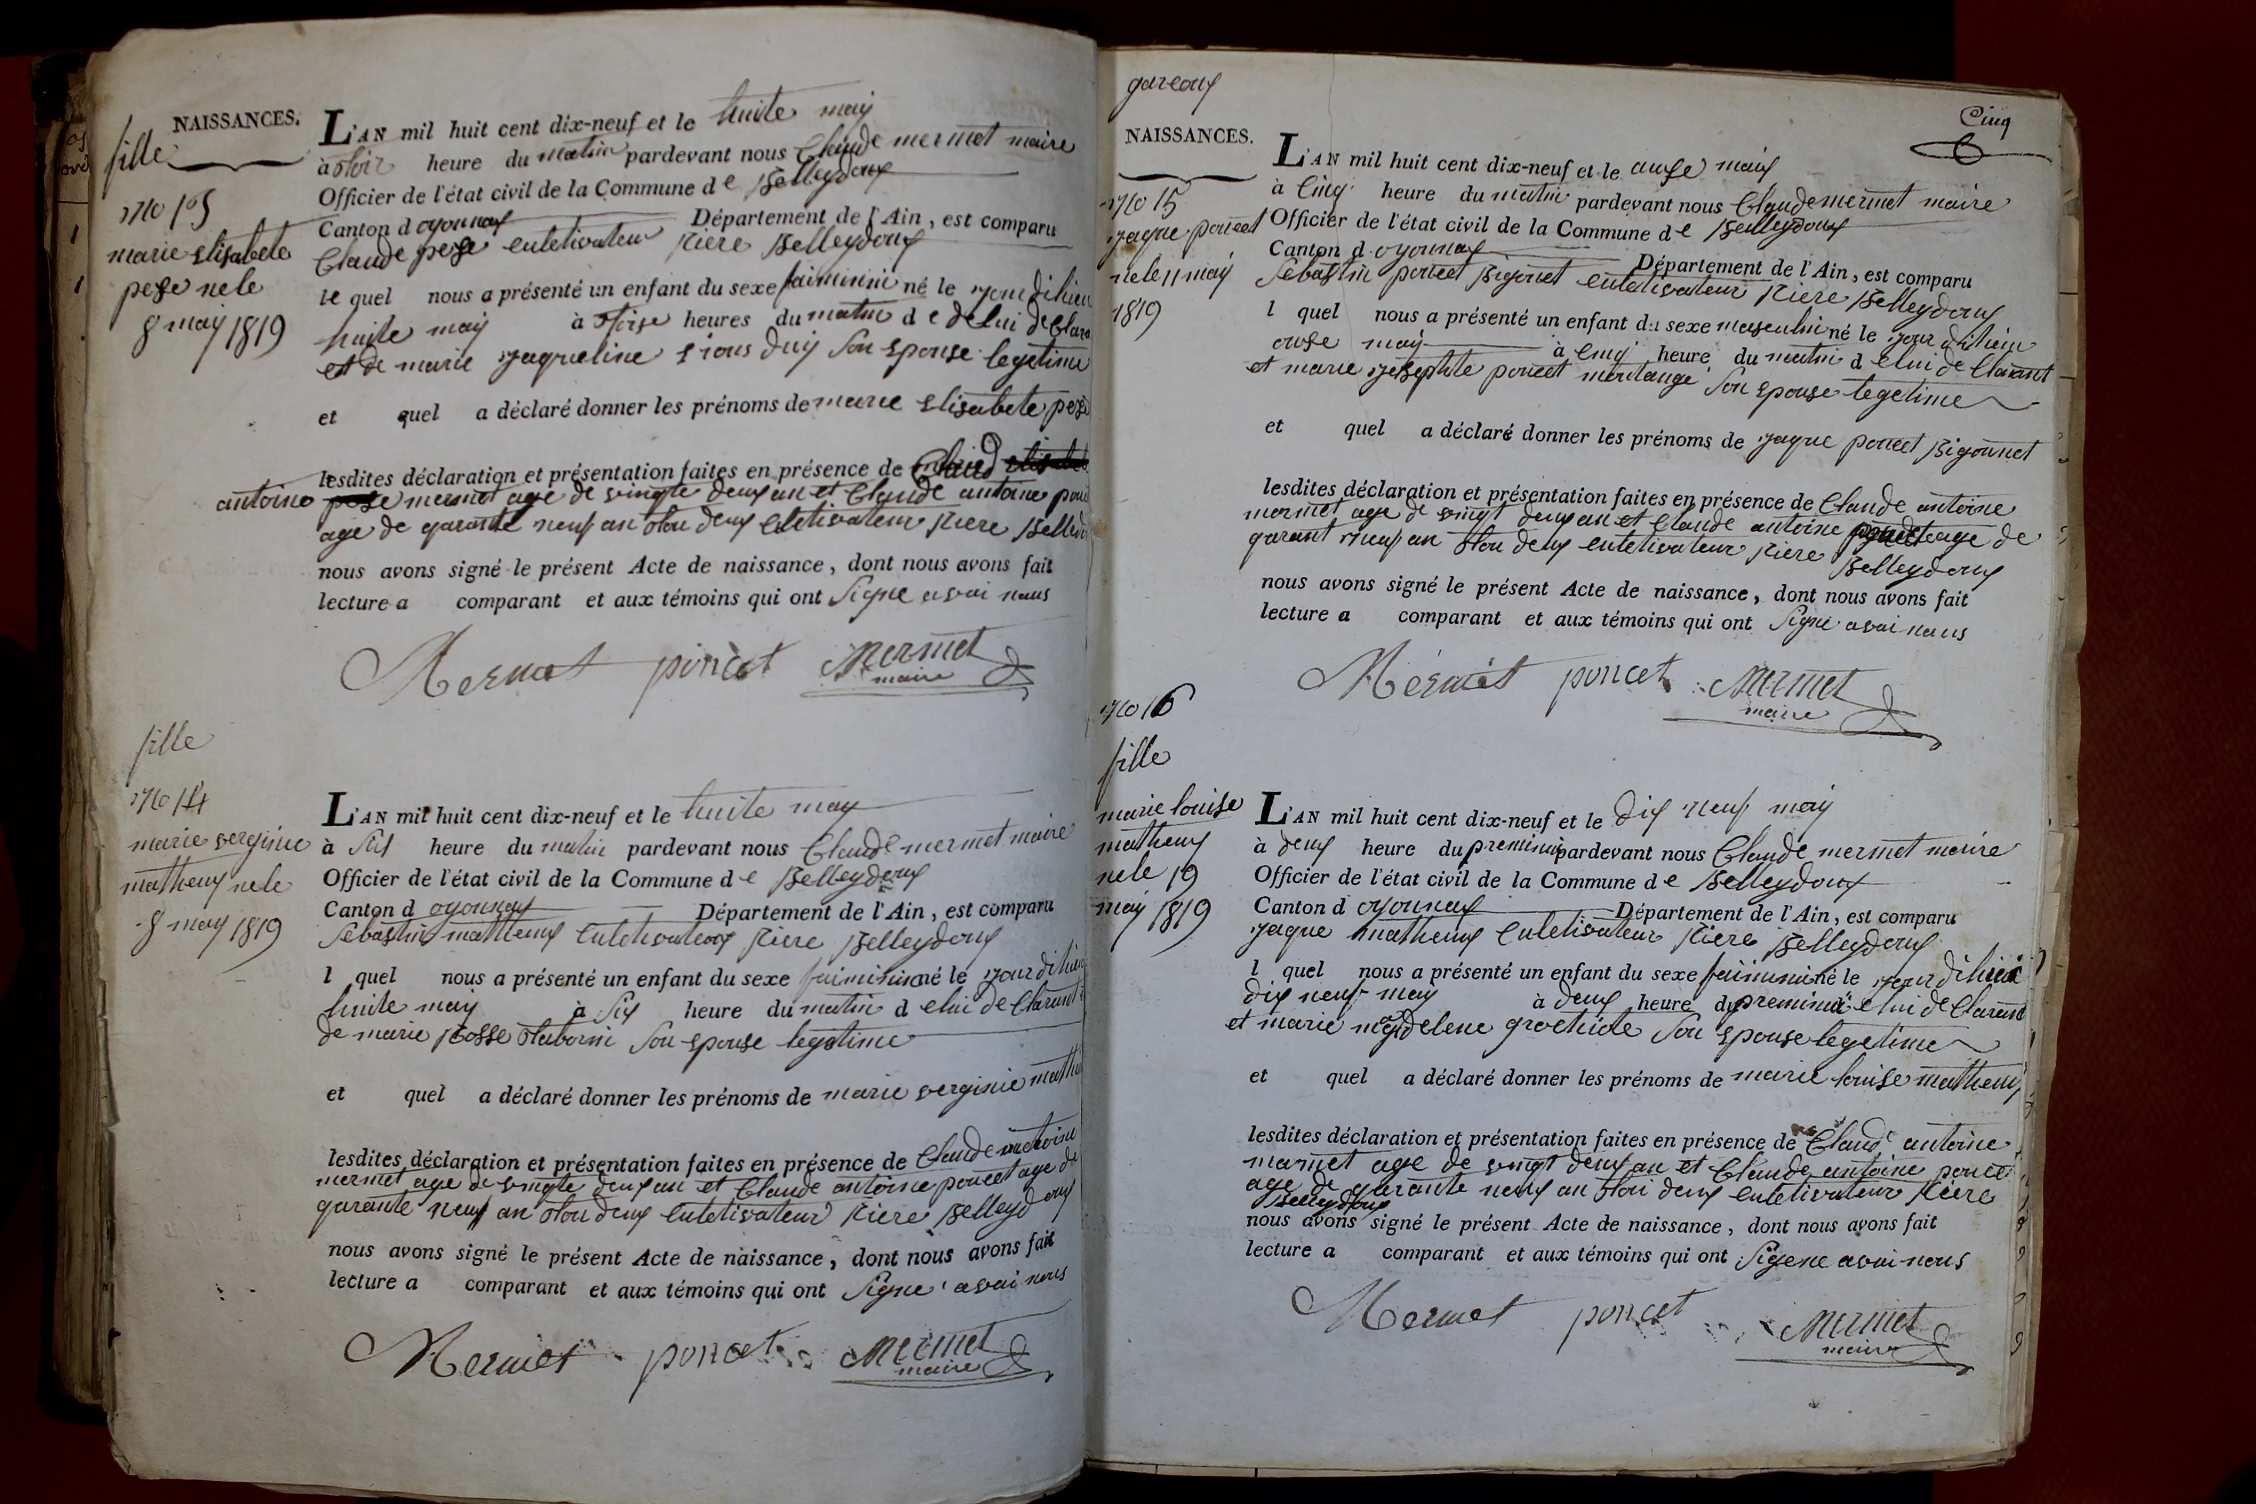 fille
NAISSANCES.
marie elisabete
pese nele
8 may 1819
L'AN mil huit cent dix-neuf et le huite may
à heure du matin pardevant nous Claude mermet maire
Officier de l'état civil de la Commune de Belleydoux
Canton d oyonnax Département de l'Ain, est comparu
Claude pese cutetivateur riere Belleydoux
le quel nous a présenté un enfant du sexe faiminin né le
huite may à heures du matin d e de lui de Clara
et de marie jaqueline son epouse legetime
et quel a déclaré donner les prénoms de marie elisabete pese
lesdites déclaration et présentation faites en présence de Claud
antoine mermet age de vingte deux an et Claude antoine
age de garante neuf an tou deux cutetivateur riere
nous avons signé le présent Acte de naissance, dont nous avons fait
lecture a comparant et aux témoins qui ont signe avai nous
Mermet poncet Mermet
maire
fille
No 14
marie verginie
matheux nele
8 may 1819
L'AN mil huit cent dix-neuf et le huite may
à heure du matin pardevant nous Claude mermet maire
Officier de l'état civil de la Commune de Belleydoux
Canton d oyonnax Département de l'Ain, est comparu
Sebastin matheux riere Belleydoux
l quel nous a présenté un enfant du sexe faiminin né le jour
huite may à six heure du matin d elui de Clarant
de marie Rosse son epouse legitime
et quel a déclaré donner les prénoms de marie verginie
lesdites déclaration et présentation faites en présence de Claude antoine
mermet age de vingte deux an et Claude antoine poncet age de
garante neuf an tou deux cutetivateur riere Belleydoux
nous avons signé le présent Acte de naissance, dont nous avons fait
lecture a comparant et aux témoins qui ont signe avai nous
Mermet poncet Mermet
maire
garcoux
Cinq
NAISSANCES.
No 15
jaque poncet
nele 11 may
1819
L'AN mil huit cent dix-neuf et le may
à Cinq heure du matin pardevant nous Claude mermet maire
Officier de l'état civil de la Commune de Belleydoux
Canton d oyonnax Département de l'Ain, est comparu
Sebastin poncet Bigonnet cutetivateur riere Belleydoux
l quel nous a présenté un enfant du sexe masculin né le jour
onse may à cinq heure du matin d elui de Clarant
et marie poncet son epouse legetime
et quel a déclaré donner les prénoms de jaque poncet Bigonnet
lesdites déclaration et présentation faites en présence de Claude antoine
mermet age de vingt deux an et Claude antoine age de
garant neuf an tou deux cutetivateur riere Belleydoux
nous avons signé le présent Acte de naissance, dont nous avons fait
lecture a comparant et aux témoins qui ont signe avai nous
Mermet poncet Mermet
maire
No 16
fille
marie louise
matheux
nele 19
may 1819
L'AN mil huit cent dix-neuf et le dix neuf may
à deux heure du pardevant nous Claude mermet maire
Officier de l'état civil de la Commune de Belleydoux
Canton d oyonnax Département de l'Ain, est comparu
jaque matheux cutetivateur riere Belleydoux
l quel nous a présenté un enfant du sexe faiminin né le jour
dix neuf may à deux heure du d elui de Clarant
et marie son epouse legetime
et quel a déclaré donner les prénoms de marie louise matheux
lesdites déclaration et présentation faites en présence de Claude antoine
mermet age de vingt deux an et Claude antoine poncet
age de garante neuf an tou deux cutetivateur riere
Belleydoux
nous avons signé le présent Acte de naissance, dont nous avons fait
lecture a comparant et aux témoins qui ont avai nous
Mermet poncet Mermet
maire